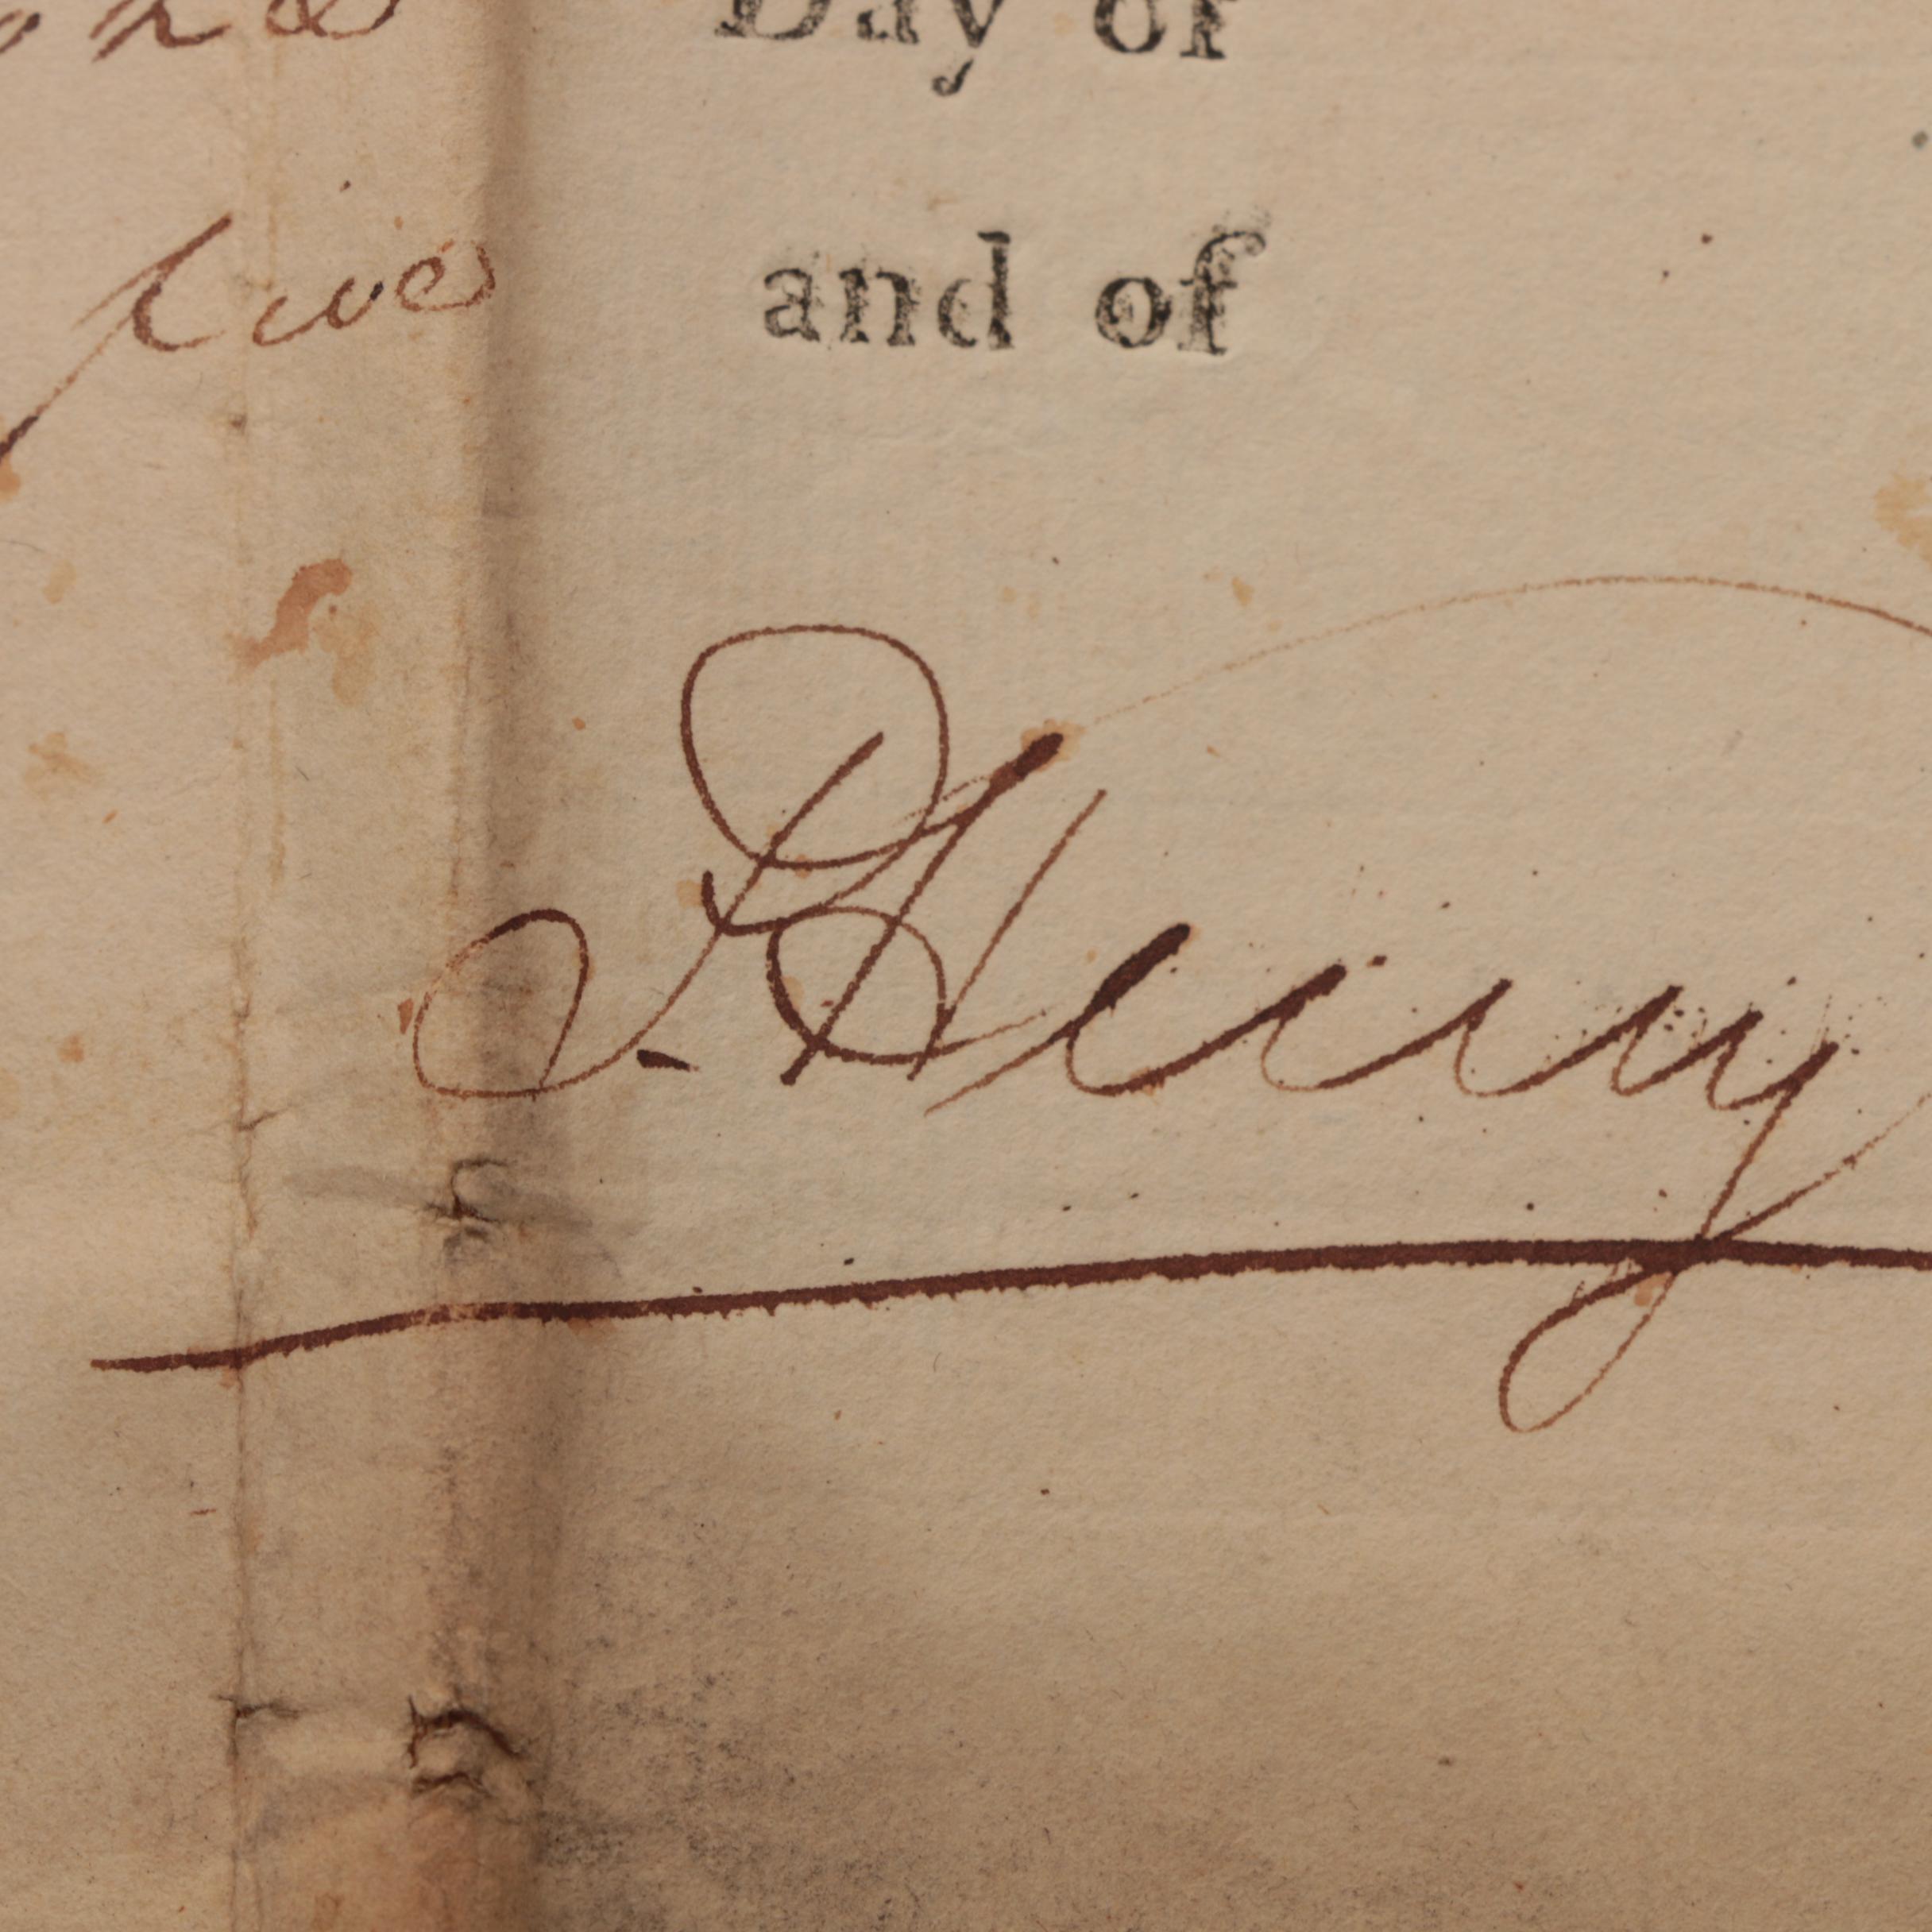 Day of
five and of
P. Henry